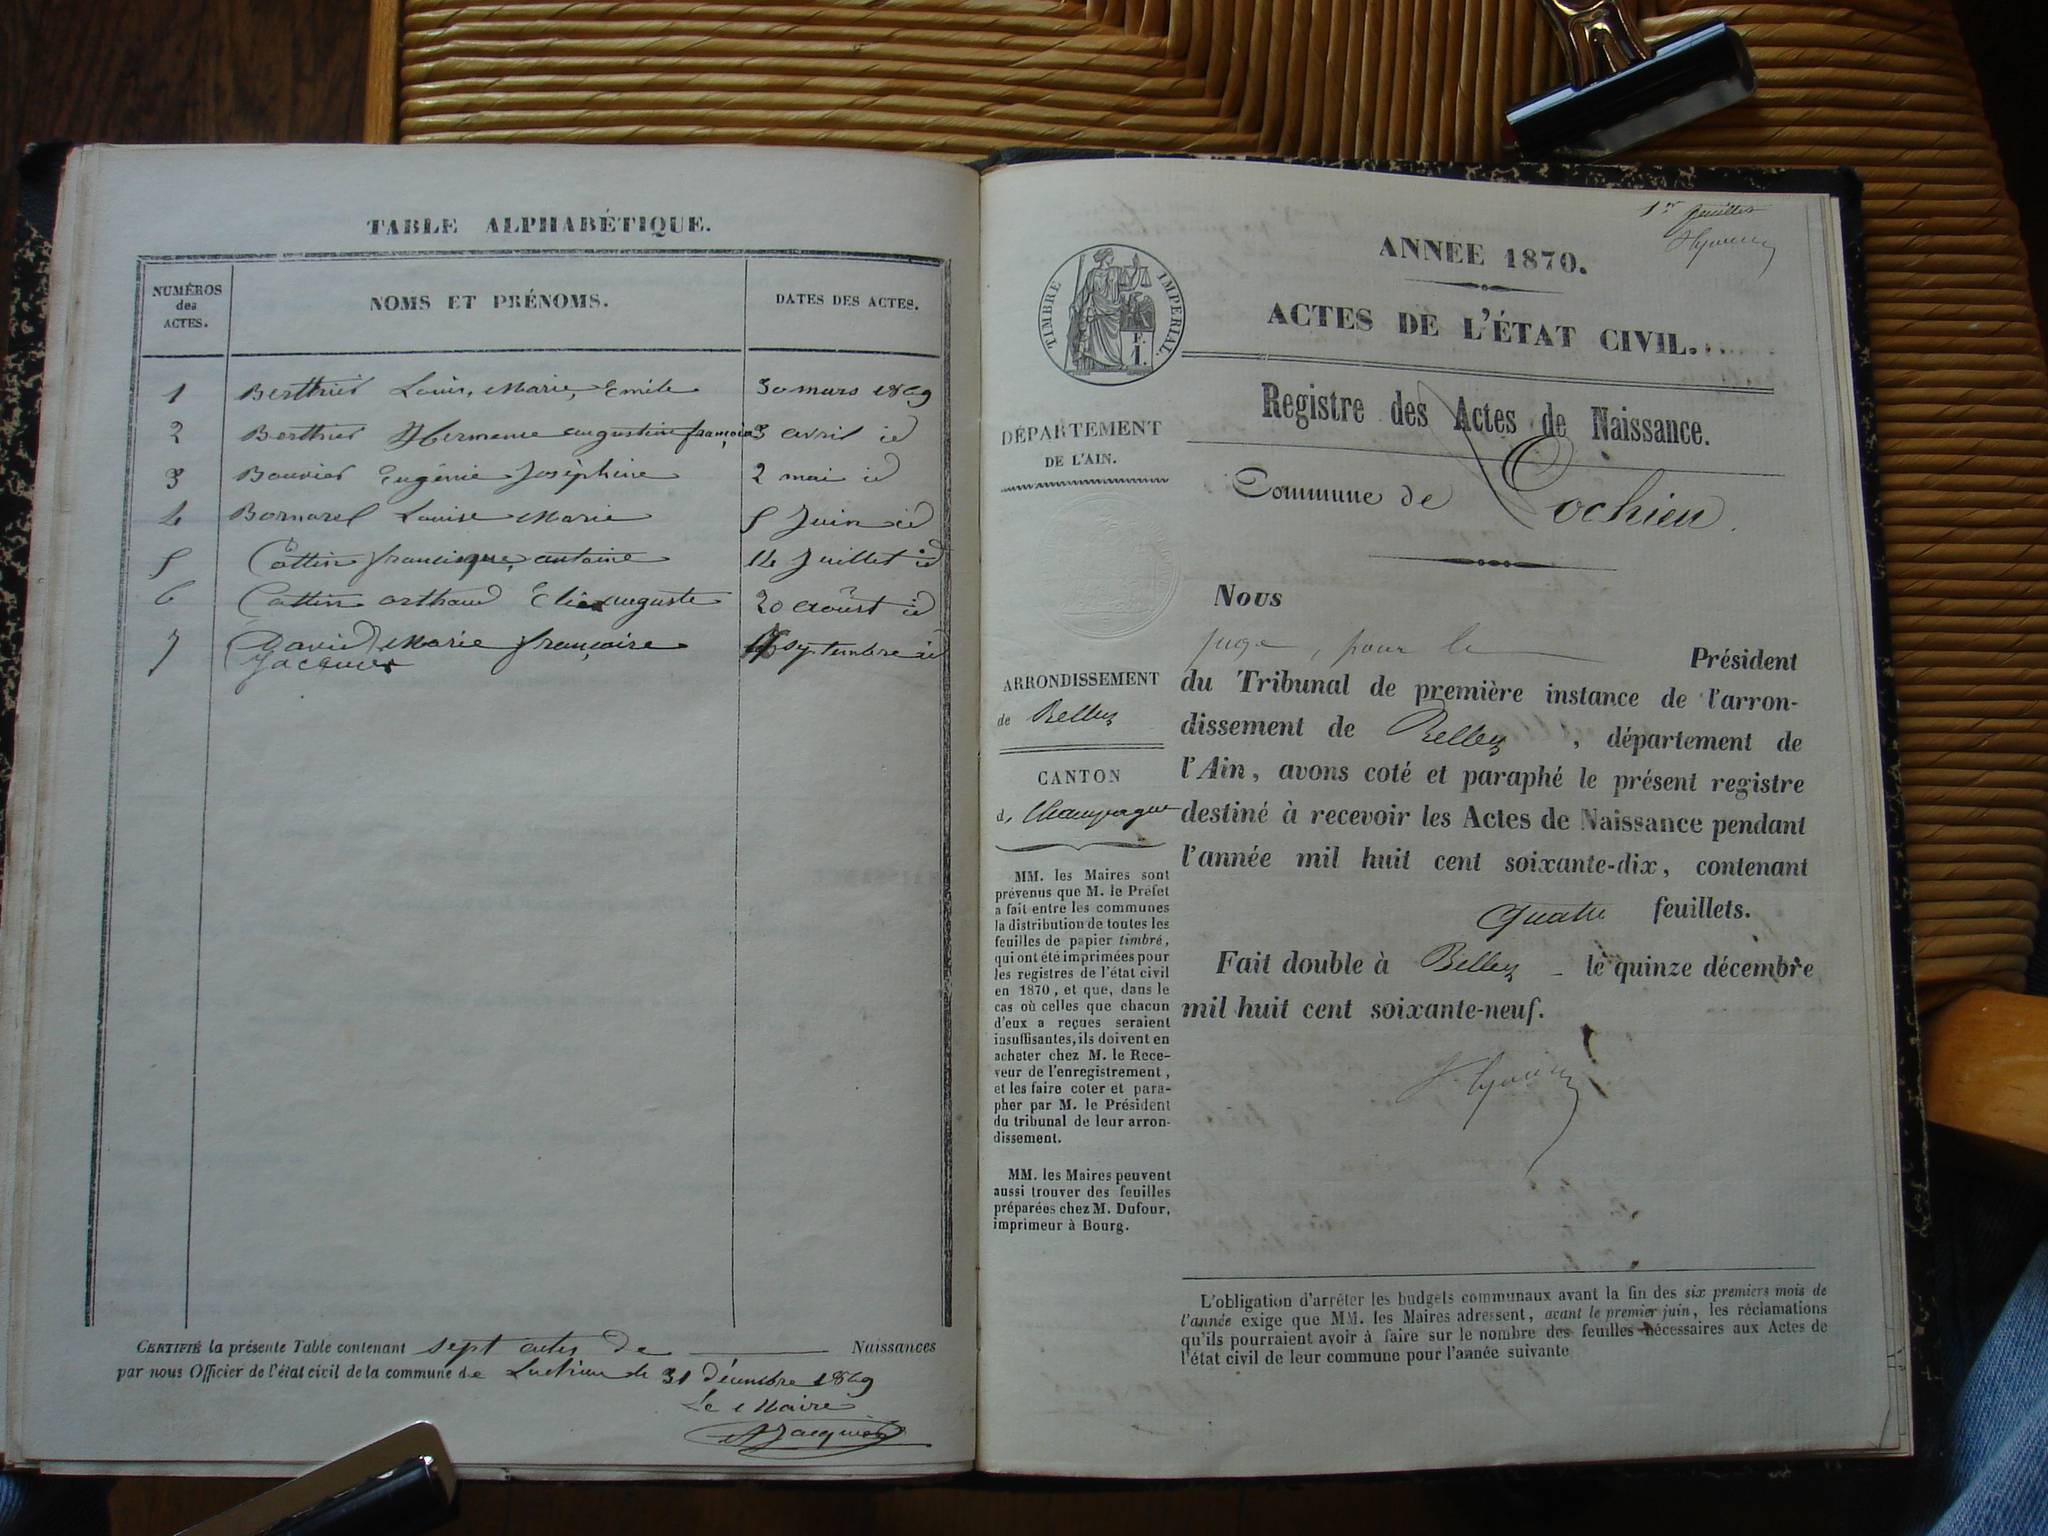 TABLE ALPHABÉTIQUE.
NUMÉROS
des
ACTES.
NOMS ET PRÉNOMS.
DATES DES ACTES.
1 Berthier Louis, Marie, Emile 30 mars 1869
2 Berthier augustine françoise 3 avril id
3 Bouvier Eugénie Joséphine 2 mai id
4 Bornarel Louise Marie 5 Juin id
5 Cottin francisque, antoine 14 Juillet id
6 Cattin arthaud Elie auguste 20 Août id
7 David Marie françoise septembre id
Jacquier
CERTIFIÉ la présente Table contenant sept actes de Naissances
par nous Officier de l'état civil de la commune de le 31 décembre 1869
Le Maire
Jacquier
1er feuillet
ANNÉE 1870.
ACTES DE L'ÉTAT CIVIL.
TIMBRE IMPÉRIAL.
F.
1.
Registre des Actes de Naissance.
Commune de Lochieu.
DÉPARTEMENT
DE L'AIN.
ARRONDISSEMENT
de Belley
CANTON
de Champagne
MM. les Maires sont
prévenus que M. le Préfet
a fait entre les communes
la distribution de toutes les
feuilles de papier timbré,
qui ont été imprimées pour
les registres de l'état civil
en 1870, et que, dans le
cas où celles que chacun
d'eux a reçues seraient
insuffisantes, ils doivent en
acheter chez M. le Rece-
veur de l'enregistrement,
et les faire coter et para-
pher par M. le Président
du tribunal de leur arron-
dissement.
MM. les Maires peuvent
aussi trouver des feuilles
préparées chez M. Dufour,
imprimeur à Bourg.
Nous
juge, pour le Président
du Tribunal de première instance de l'arron-
dissement de Belley, département de
l'Ain, avons coté et paraphé le présent registre
destiné à recevoir les Actes de Naissance pendant
l'année mil huit cent soixante-dix, contenant
quatre feuillets.
Fait double à Belley le quinze décembre
mil huit cent soixante-neuf.
L'obligation d'arrêter les budgets communaux avant la fin des six premiers mois de
l'année exige que MM. les Maires adressent, avant le premier juin, les réclamations
qu'ils pourraient avoir à faire sur le nombre des feuilles nécessaires aux Actes de
l'état civil de leur commune pour l'année suivante